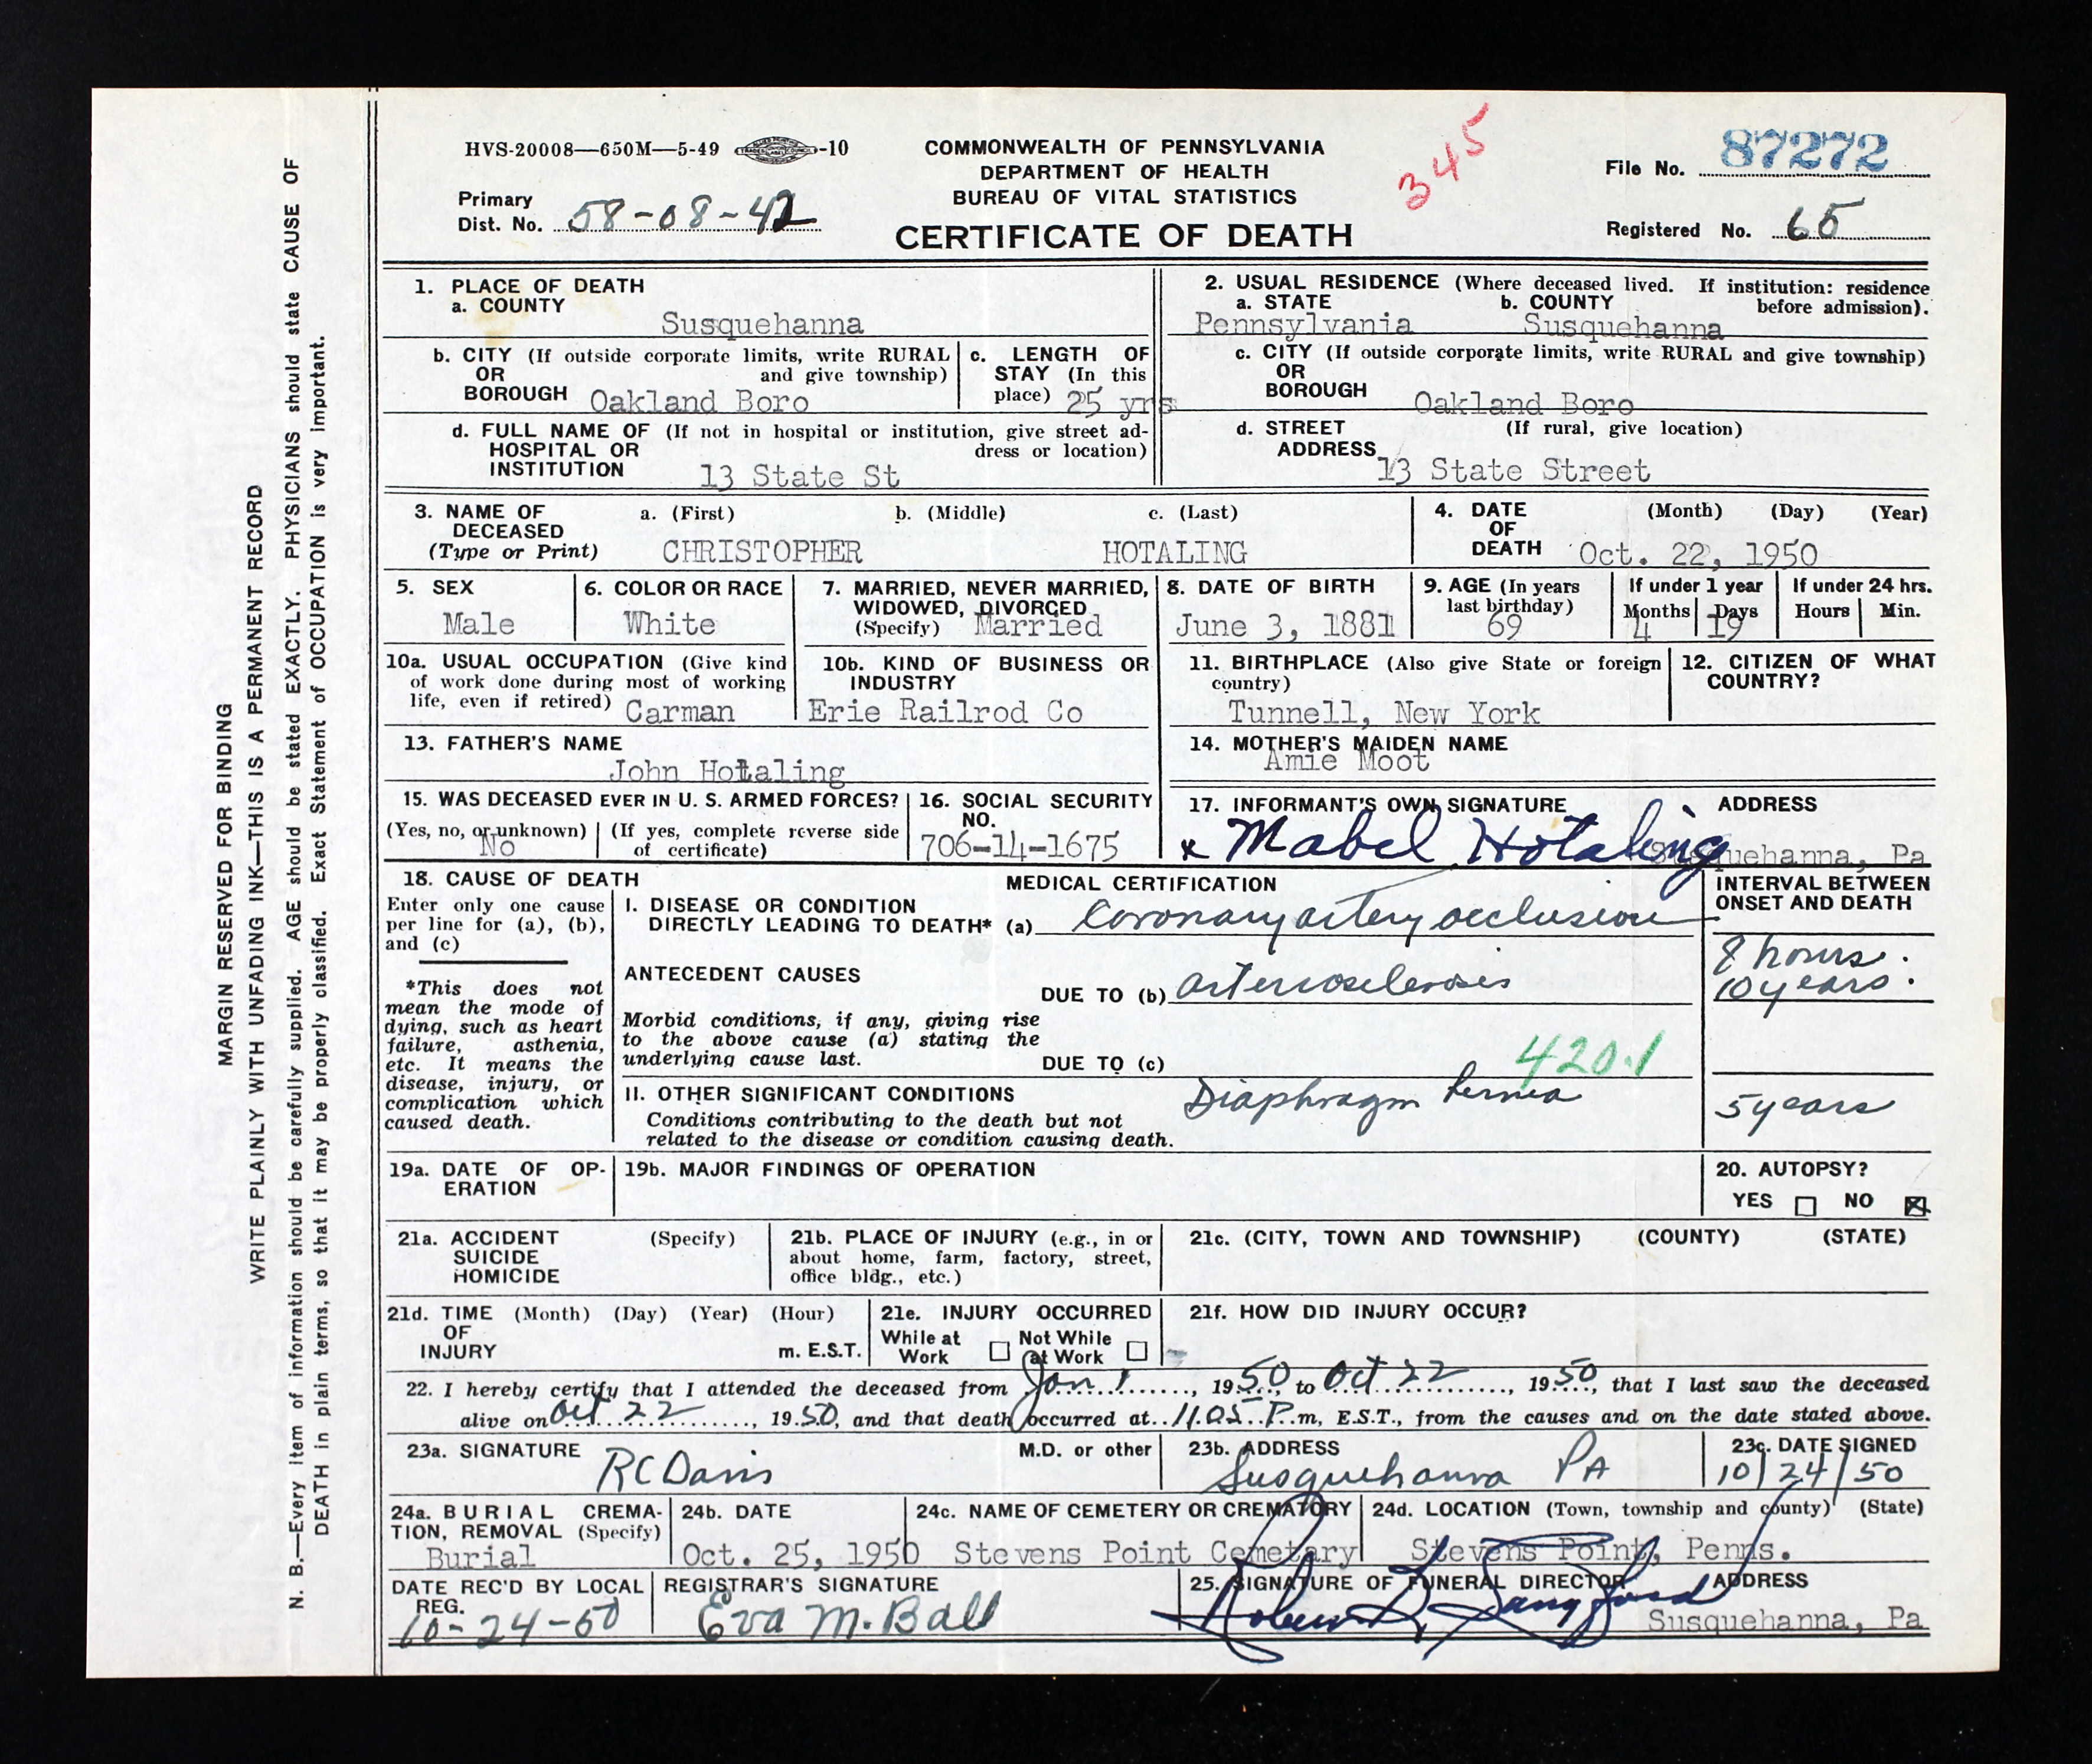 HVS-20008—650M—5-49 -10
COMMONWEALTH OF PENNSYLVANIA
DEPARTMENT OF HEALTH
BUREAU OF VITAL STATISTICS
CERTIFICATE OF DEATH
345
File No. 87272
Primary
Dist. No. 58-08-42
Registered No. 65
1. PLACE OF DEATH
a. COUNTY
Susquehanna
2. USUAL RESIDENCE (Where deceased lived. If institution: residence
a. STATE b. COUNTY before admission).
Pennsylvania Susquehanna
b. CITY (If outside corporate limits, write RURAL
OR and give township)
BOROUGH Oakland Boro
c. LENGTH OF
STAY (In this
place) 25 yrs
c. CITY (If outside corporate limits, write RURAL and give township)
OR
BOROUGH Oakland Boro
d. FULL NAME OF (If not in hospital or institution, give street ad-
HOSPITAL OR dress or location)
INSTITUTION 13 State St
d. STREET (If rural, give location)
ADDRESS 13 State Street
3. NAME OF a. (First) b. (Middle) c. (Last)
DECEASED
(Type or Print) CHRISTOPHER HOTALING
4. DATE (Month) (Day) (Year)
OF
DEATH Oct. 22, 1950
5. SEX
Male
6. COLOR OR RACE
White
7. MARRIED, NEVER MARRIED,
WIDOWED, DIVORCED
(Specify) Married
8. DATE OF BIRTH
June 3, 1881
9. AGE (In years
last birthday)
69
If under 1 year
Months Days
4 19
If under 24 hrs.
Hours Min.
10a. USUAL OCCUPATION (Give kind
of work done during most of working
life, even if retired) Carman
10b. KIND OF BUSINESS OR
INDUSTRY
Erie Railrod Co
11. BIRTHPLACE (Also give State or foreign
country)
Tunnell, New York
12. CITIZEN OF WHAT
COUNTRY?
13. FATHER'S NAME
John Hotaling
14. MOTHER'S MAIDEN NAME
Amie Moot
15. WAS DECEASED EVER IN U. S. ARMED FORCES?
(Yes, no, or unknown) (If yes, complete reverse side
No of certificate)
16. SOCIAL SECURITY
NO.
706-14-1675
17. INFORMANT'S OWN SIGNATURE ADDRESS
x Mabel Hotaling Susquehanna, Pa
18. CAUSE OF DEATH
Enter only one cause
per line for (a), (b),
and (c)
*This does not
mean the mode of
dying, such as heart
failure, asthenia,
etc. It means the
disease, injury, or
complication which
caused death.
MEDICAL CERTIFICATION
I. DISEASE OR CONDITION
DIRECTLY LEADING TO DEATH* (a) Coronary artery occlusion
ANTECEDENT CAUSES
DUE TO (b) arteriosclerosis
Morbid conditions, if any, giving rise
to the above cause (a) stating the
underlying cause last.
DUE TO (c)
420.1
II. OTHER SIGNIFICANT CONDITIONS
Diaphragm hernia
Conditions contributing to the death but not
related to the disease or condition causing death.
INTERVAL BETWEEN
ONSET AND DEATH
8 hours.
10 years.
5 years
19a. DATE OF OP-
ERATION
19b. MAJOR FINDINGS OF OPERATION
20. AUTOPSY?
YES NO
21a. ACCIDENT (Specify)
SUICIDE
HOMICIDE
21b. PLACE OF INJURY (e.g., in or
about home, farm, factory, street,
office bldg., etc.)
21c. (CITY, TOWN AND TOWNSHIP) (COUNTY) (STATE)
21d. TIME (Month) (Day) (Year) (Hour)
OF
INJURY m. E.S.T.
21e. INJURY OCCURRED
While at Not While
Work at Work
21f. HOW DID INJURY OCCUR?
22. I hereby certify that I attended the deceased from Jan 1, 1950, to Oct 22, 1950, that I last saw the deceased
alive on Oct 22, 1950, and that death occurred at 11.05 P.m, E.S.T., from the causes and on the date stated above.
23a. SIGNATURE M.D. or other
RC Davis
23b. ADDRESS
Susquehanna PA
23c. DATE SIGNED
10/24/50
24a. BURIAL CREMA-
TION, REMOVAL (Specify)
Burial
24b. DATE
Oct. 25, 1950
24c. NAME OF CEMETERY OR CREMATORY
Stevens Point Cemetary
24d. LOCATION (Town, township and county) (State)
Stevens Point, Penns.
DATE REC'D BY LOCAL
REG.
10-24-50
REGISTRAR'S SIGNATURE
Eva M. Ball
25. SIGNATURE OF FUNERAL DIRECTOR ADDRESS
Susquehanna, Pa
MARGIN RESERVED FOR BINDING
WRITE PLAINLY WITH UNFADING INK—THIS IS A PERMANENT RECORD
N. B.—Every item of information should be carefully supplied. AGE should be stated EXACTLY. PHYSICIANS should state CAUSE OF
DEATH in plain terms, so that it may be properly classified. Exact Statement of OCCUPATION is very important.